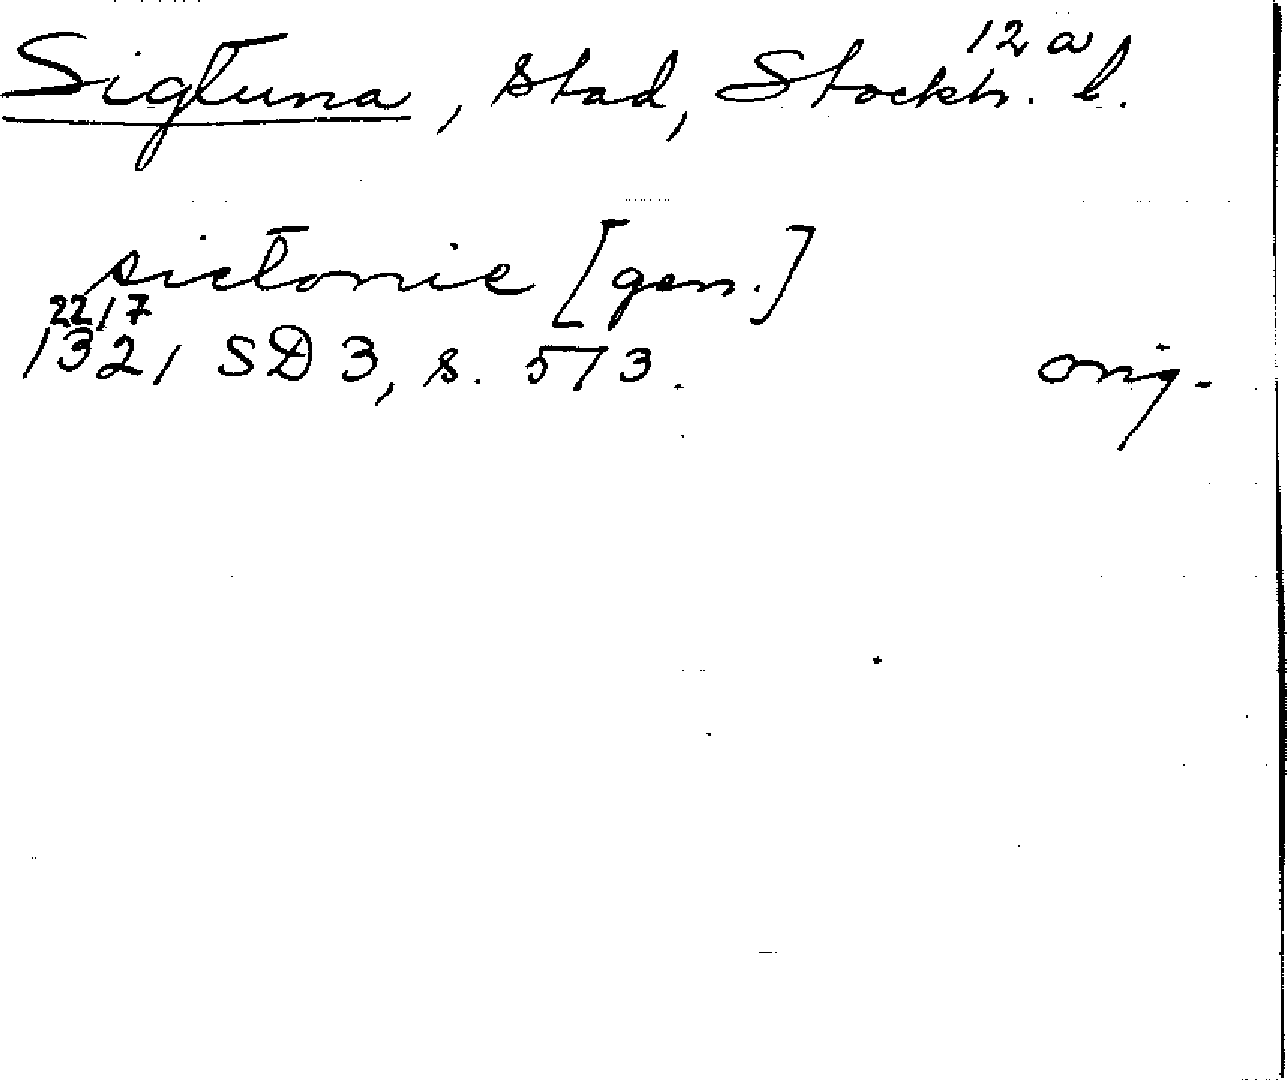 12 a
Sigtuna, stad, Stockh. l.
sictonie [gen.]
22/7
1321 SD 3, s. 573. orig.